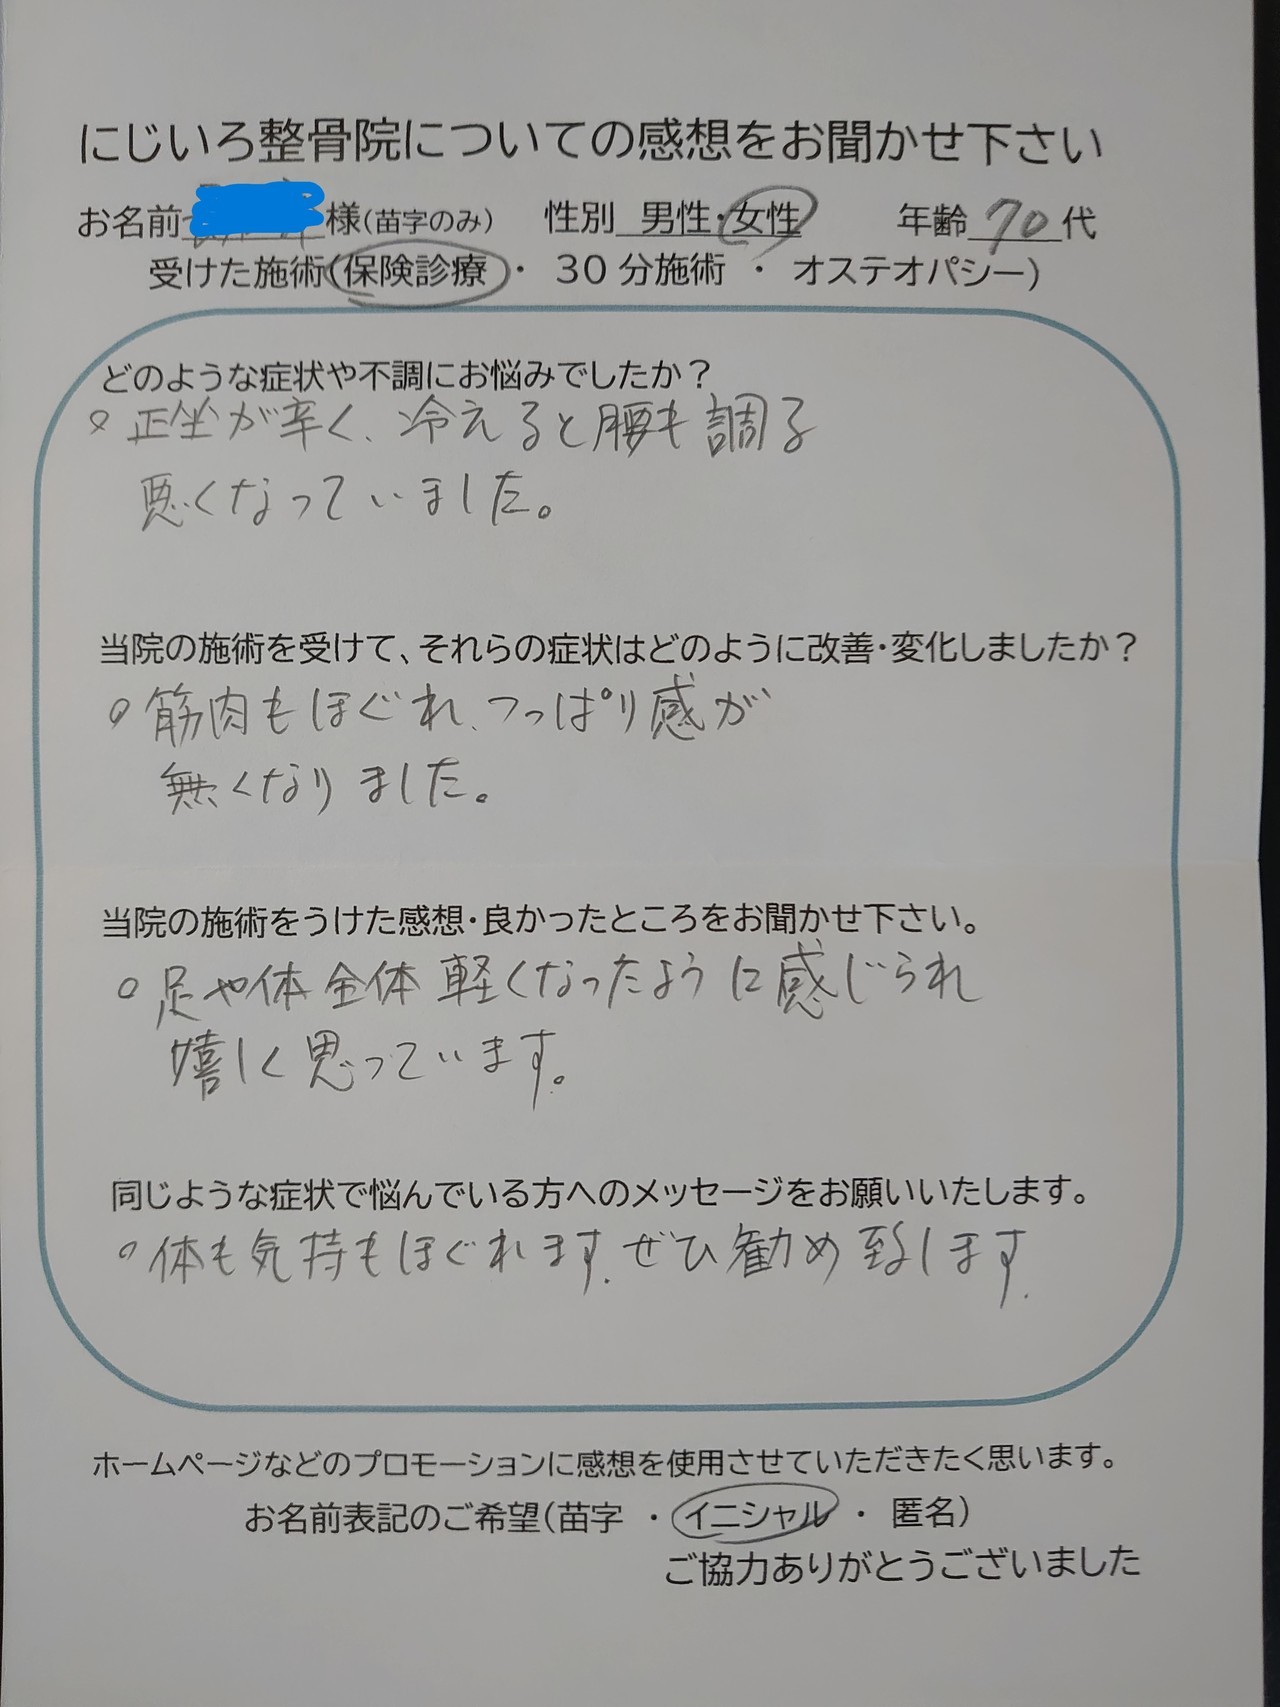 にじいろ整骨院についての感想をお聞かせ下さい
お名前 様(苗字のみ) 性別 男性・女性 年齢 70 代
受けた施術(保険診療 ・ 30分施術 ・ オステオパシー)
どのような症状や不調にお悩みでしたか?
○ 正坐が辛く、冷えると腰も調る
悪くなっていました。
当院の施術を受けて、それらの症状はどのように改善・変化しましたか?
○ 筋肉もほぐれ、つっぱり感が
無くなりました。
当院の施術をうけた感想・良かったところをお聞かせ下さい。
○ 足や体全体軽くなったように感じられ
嬉しく思っています。
同じような症状で悩んでいる方へのメッセージをお願いいたします。
○ 体も気持もほぐれます. ぜひ勧め致します.
ホームページなどのプロモーションに感想を使用させていただきたく思います。
お名前表記のご希望(苗字 ・ イニシャル ・ 匿名)
ご協力ありがとうございました